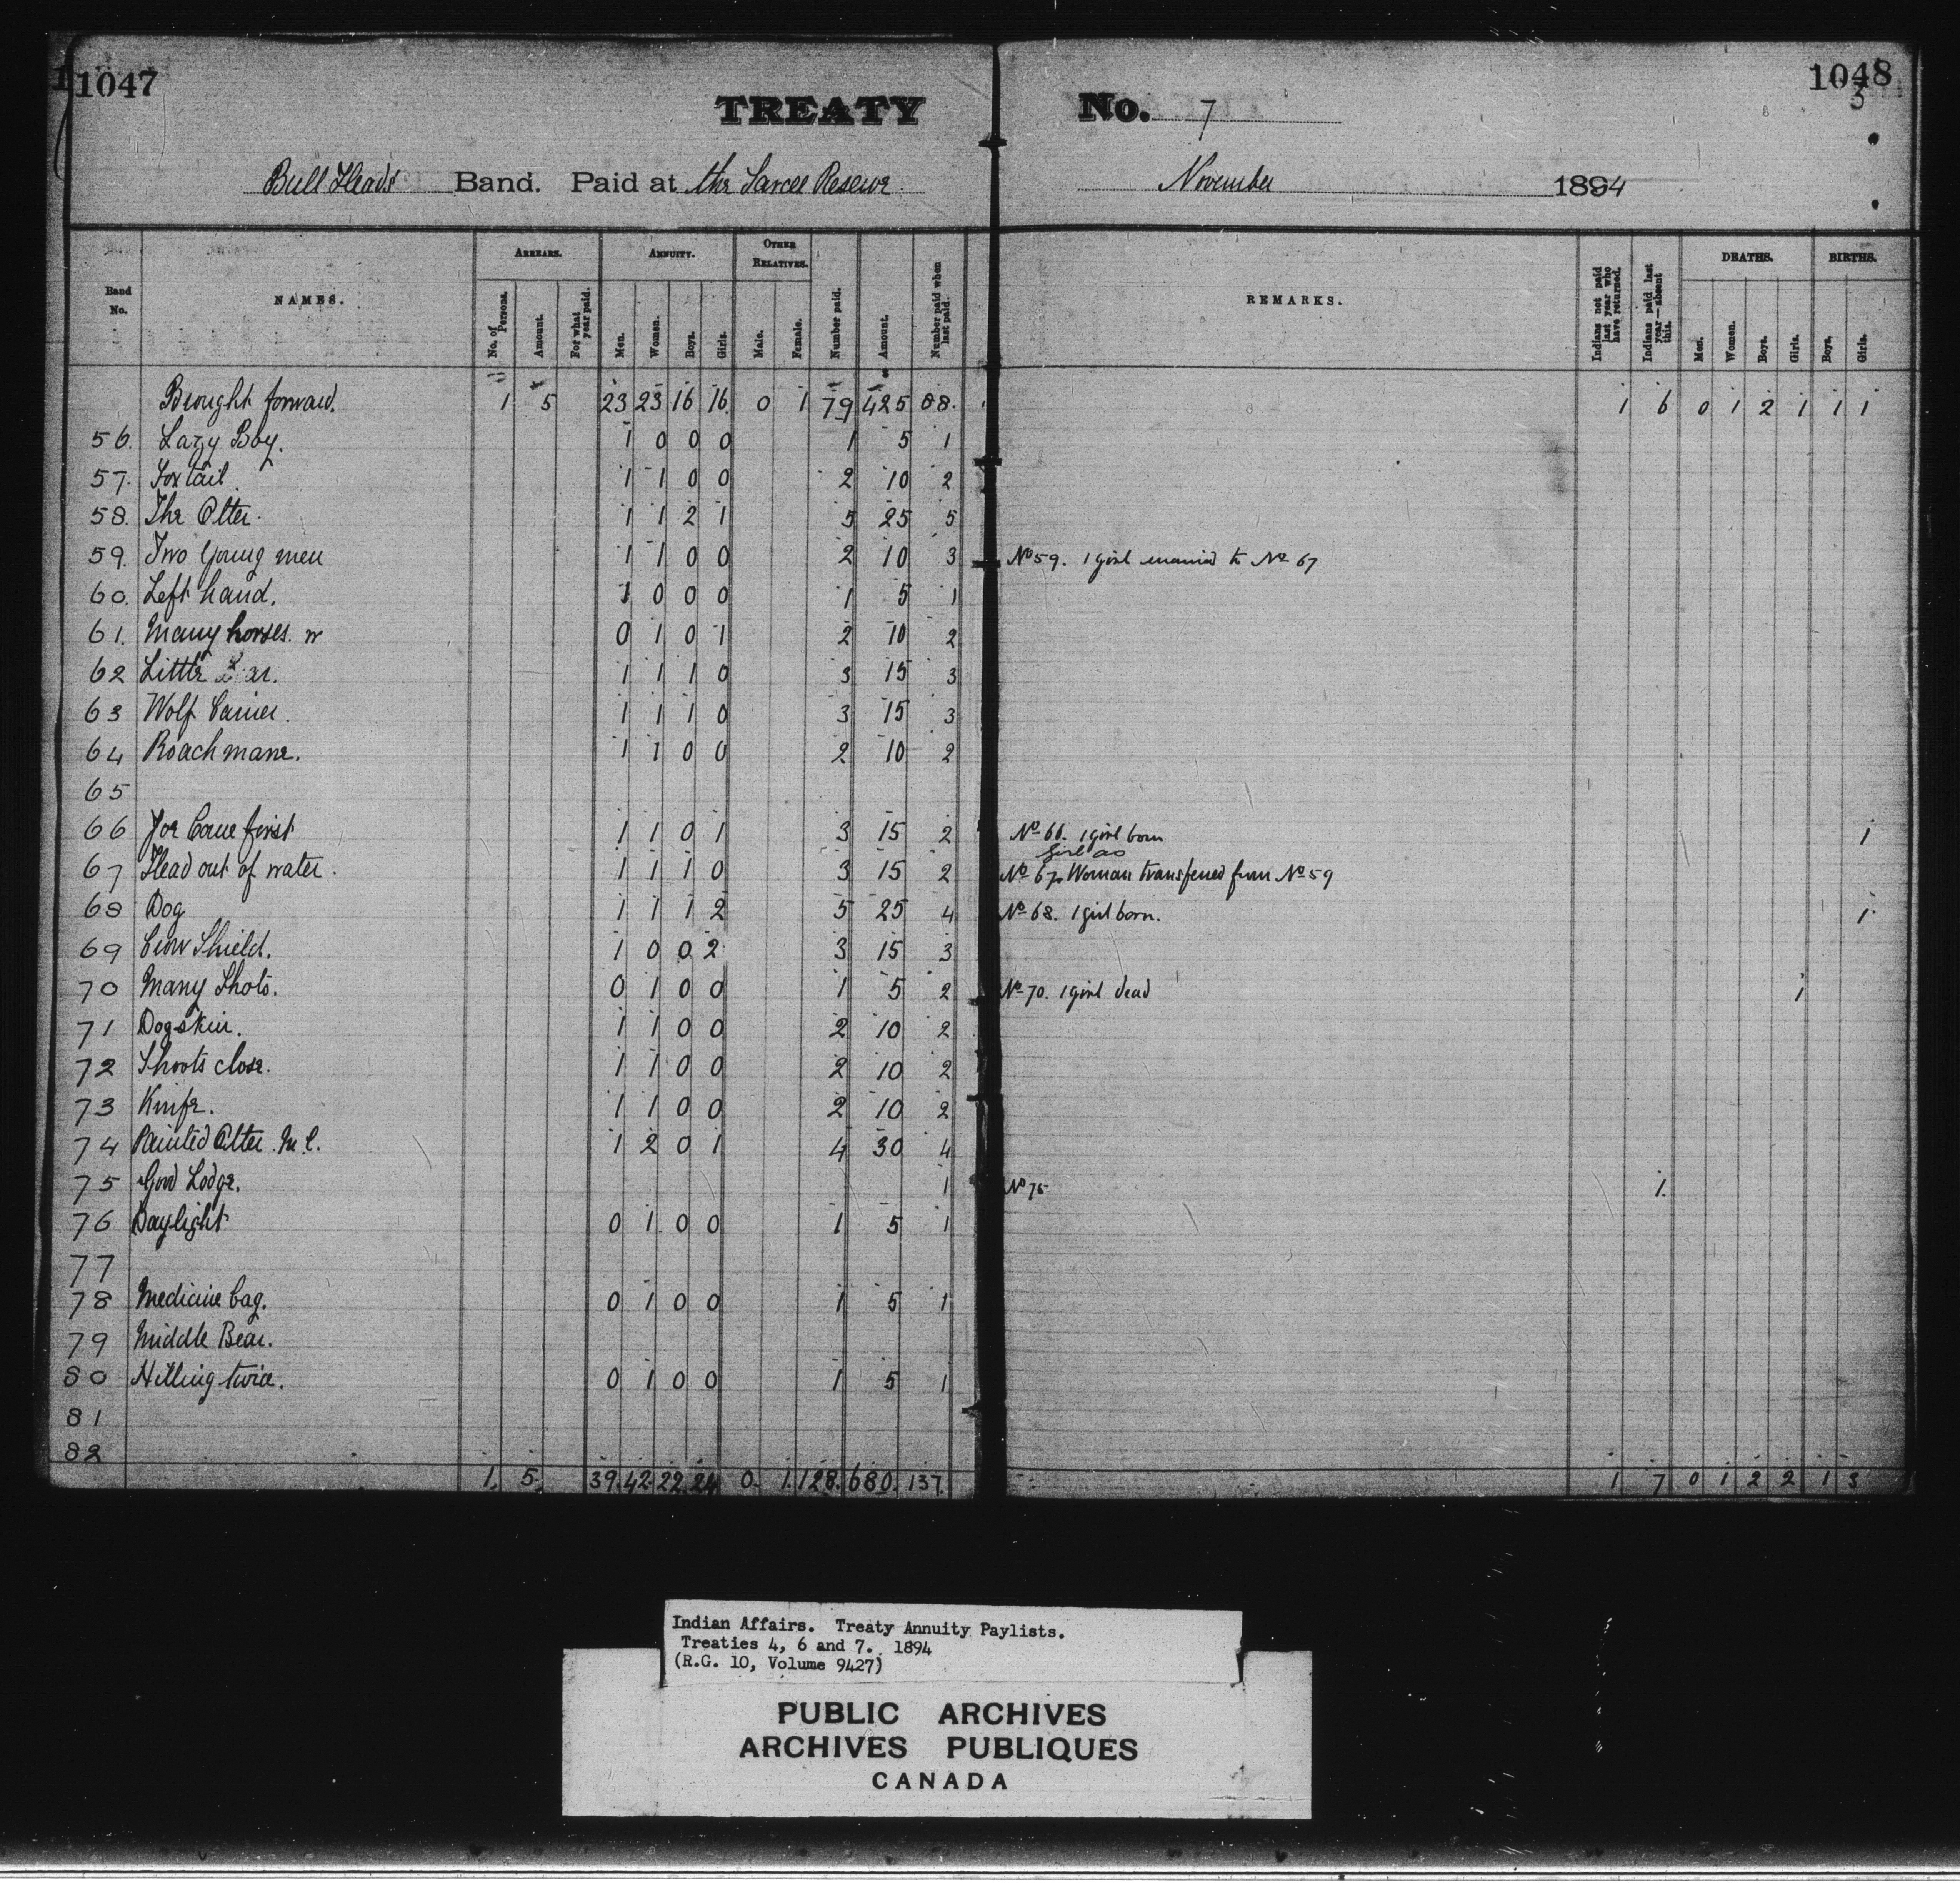 1047
1048
3
TREATY No. 7
Bull Head's Band. Paid at the Sarcee Reserve November 1894
Band No. NAMES. ARREARS. No. of Persons. Amount. For what year paid. ANNUITY. Men. Women. Boys. Girls. OTHER RELATIVES. Male. Female. Number paid. Amount. Number paid when last paid. REMARKS. Indians not paid last year who have returned. Indians paid last year—absent this. DEATHS. Men. Women. Boys. Girls. BIRTHS. Boys. Girls.
Brought forward. 1 5 23 23 16 16 0 1 79 425 88. 1 6 0 1 2 1 1 1
56. Lazy Boy. 1 0 0 0 1 5 1
57. Fox tail. 1 1 0 0 2 10 2
58. The Otter. 1 1 2 1 5 25 5
59. Two Young men 1 1 0 0 2 10 3 No 59. 1 girl married to No 67
60. Left hand. 1 0 0 0 1 5 1
61. Many horses. w 0 1 0 1 2 10 2
62 Little 1 1 1 0 3 15 3
63 Wolf Carrier. 1 1 1 0 3 15 3
64 Roach mane. 1 1 0 0 2 10 2
65
66 Joe Came first 1 1 0 1 3 15 2 No 66. 1 girl born 1
girl as
67 Head out of water. 1 1 1 0 3 15 2 No 67 Woman transferred from No 59
68 Dog 1 1 1 2 5 25 4 No 68. 1 girl born. 1
69 Crow Shield. 1 0 0 2 3 15 3
70 Many Shots. 0 1 0 0 1 5 2 No 70. 1 girl dead 1
71 Dogskin. 1 1 0 0 2 10 2
72 Shoots close. 1 1 0 0 2 10 2
73 Knife. 1 1 0 0 2 10 2
74 Painted Otter. M.C. 1 2 0 1 4 30 4
75 Good Lodge. 1 No 75 1.
76 Daylight 0 1 0 0 1 5 1
77
78 Medicine bag. 0 1 0 0 1 5 1
79 Middle Bear.
80 Hitting twice. 0 1 0 0 1 5 1
81
82
1. 5. 39. 42. 22. 24 0. 1. 128. 680. 137. 1 7 0 1 2 2 1 3
Indian Affairs. Treaty Annuity Paylists.
Treaties 4, 6 and 7. 1894
(R.G. 10, Volume 9427)
PUBLIC ARCHIVES
ARCHIVES PUBLIQUES
CANADA